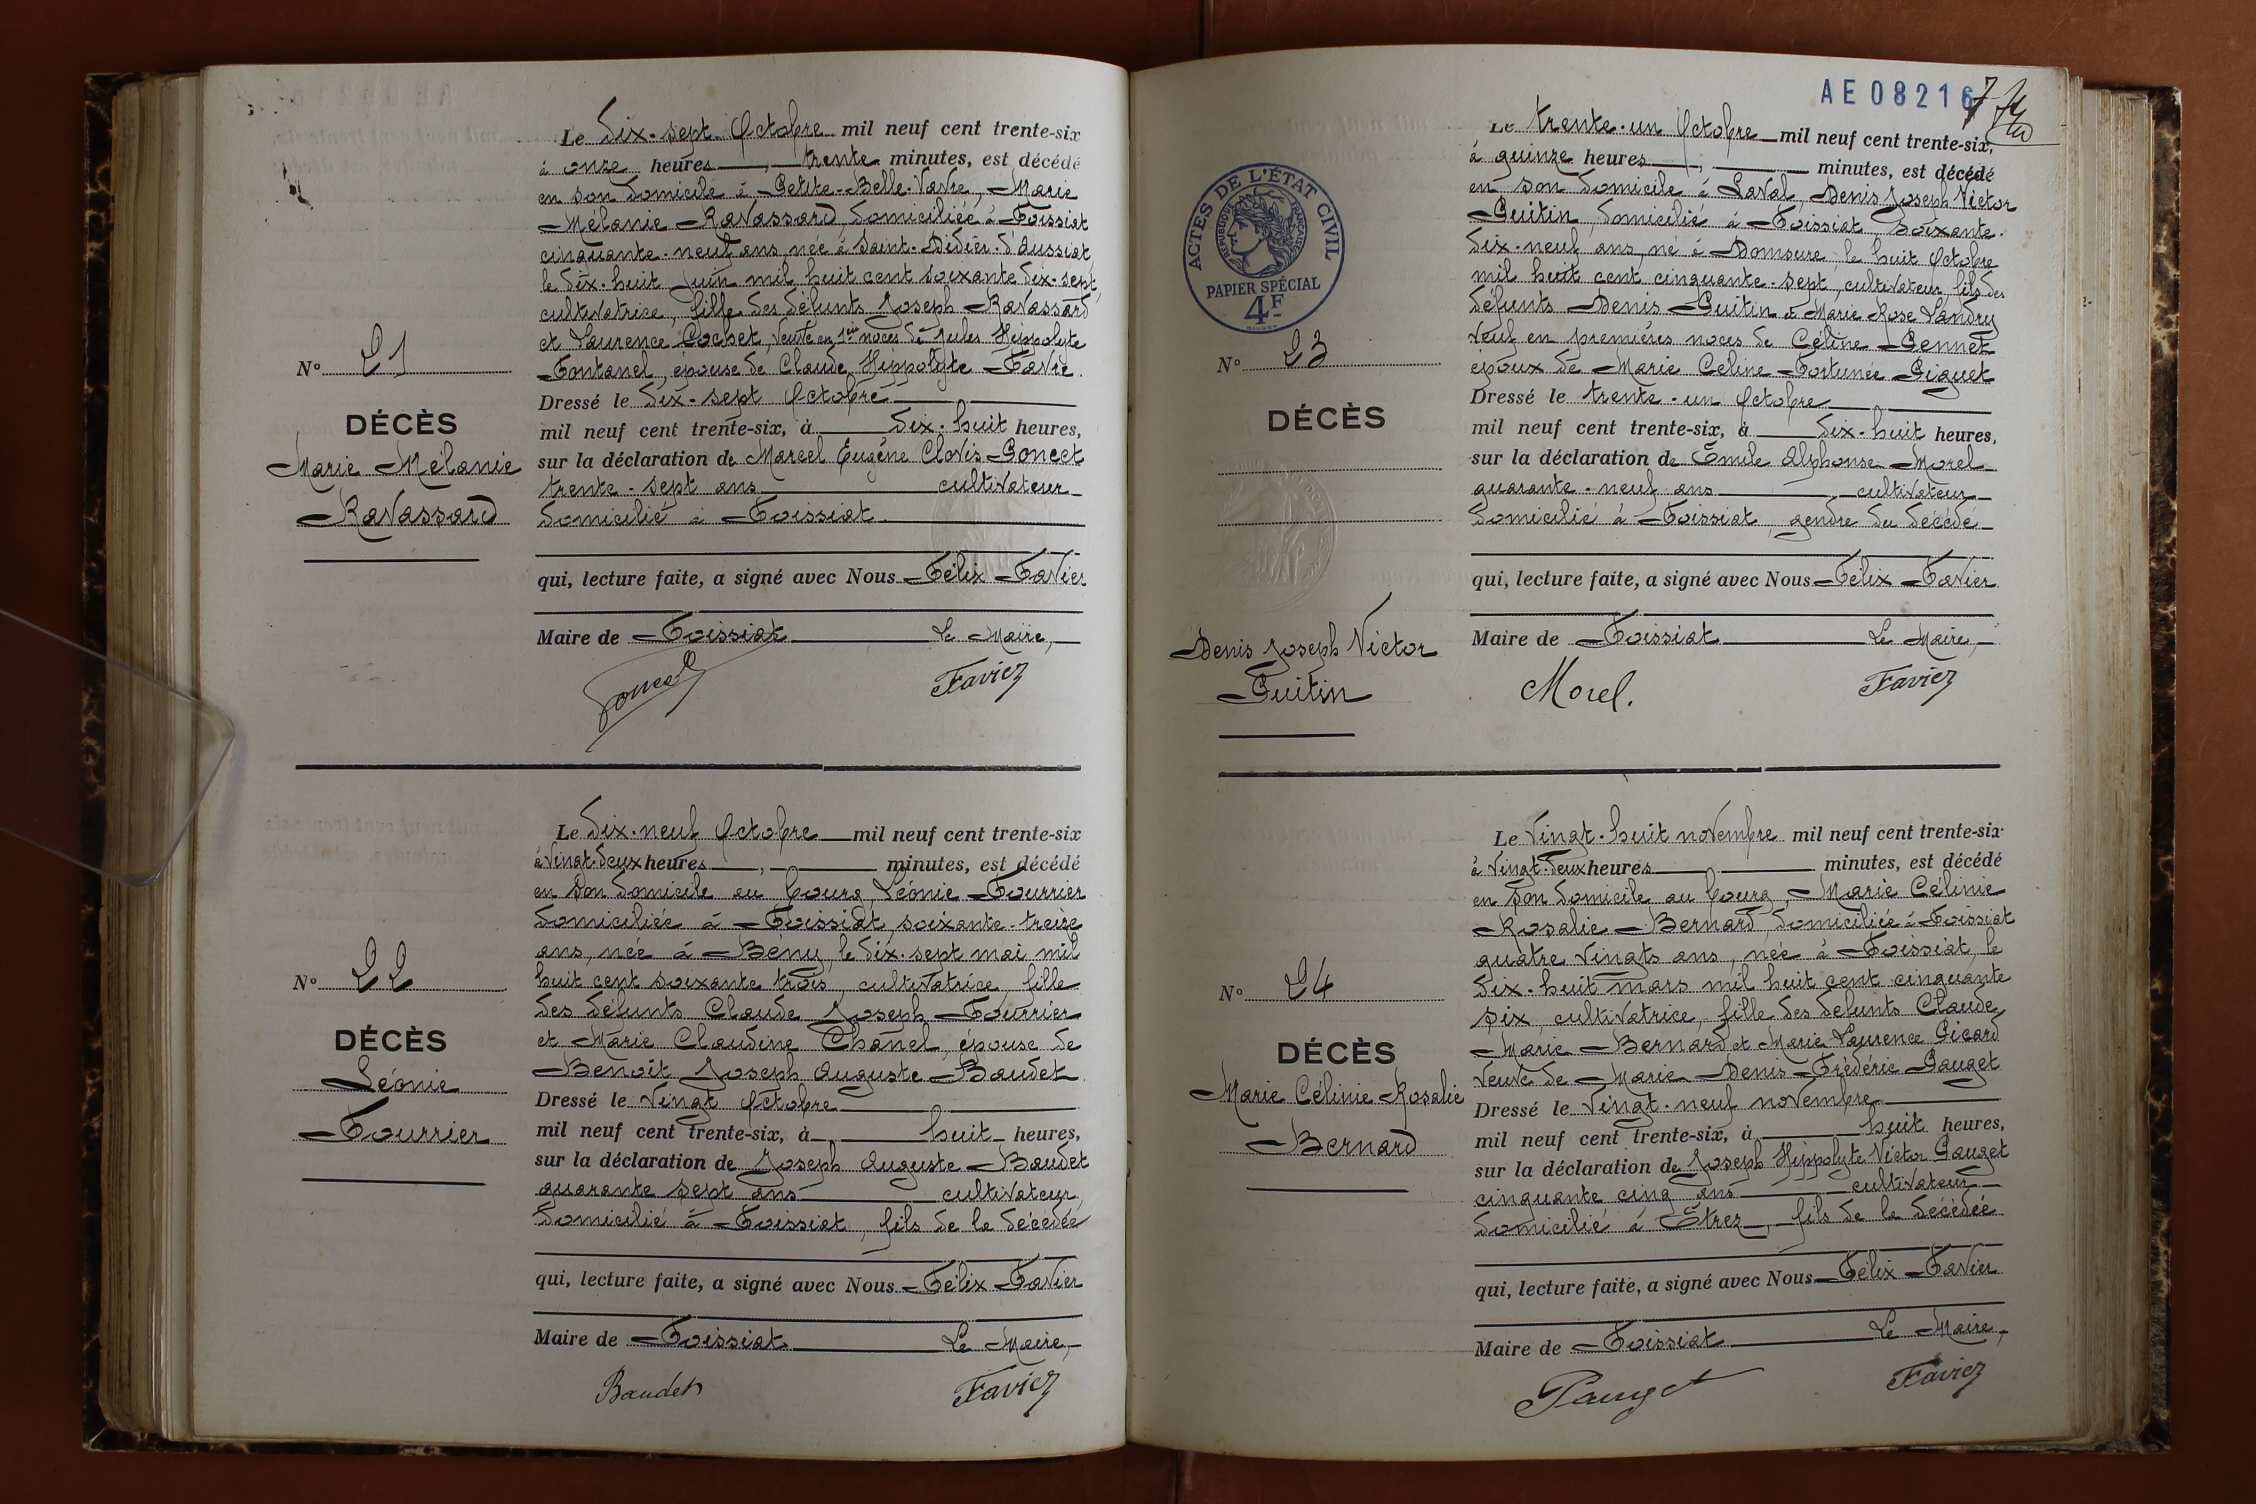 Le dix-sept Octobre mil neuf cent trente-six
à onze heures, trente minutes, est décédé
en son domicile à Petite-Belle-Vavre, Marie
Mélanie Ravassard, domiciliée à Foissiat
cinquante-neuf ans, née à Saint-Didier-d'Aussiat
le dix-huit Juin mil huit cent soixante dix-sept,
cultivatrice, fille des défunts Joseph Ravassard
et Laurence Cochet, veuve en 1ères noces de Jules Hippolyte
Fontanel, épouse de Claude Hippolyte Favre.
Dressé le dix-sept Octobre
mil neuf cent trente-six, à dix-huit heures,
sur la déclaration de Marcel Eugène Clovis Poncet
trente-sept ans cultivateur
domicilié à Foissiat
qui, lecture faite, a signé avec Nous Félix Favier
Maire de Foissiat Le Maire,
Poncet Favier
N° 21
DÉCÈS
Marie Mélanie
Ravassard
Le dix-neuf Octobre mil neuf cent trente-six
à vingt-deux heures, minutes, est décédé
en son domicile au bourg, Léonie Fourrier
domiciliée à Foissiat, soixante-treize
ans, née à Bény, le dix-sept mai mil
huit cent soixante trois, cultivatrice, fille
des défunts Claude Joseph Fourrier
et Marie Claudine Chanel, épouse de
Benoît Joseph Auguste Baudet
Dressé le vingt Octobre
mil neuf cent trente-six, à huit heures,
sur la déclaration de Joseph Auguste Baudet
quarante sept ans cultivateur,
domicilié à Foissiat, fils de la décédée
qui, lecture faite, a signé avec Nous Félix Favier
Maire de Foissiat Le Maire,
Baudet Favier
N° 22
DÉCÈS
Léonie
Fourrier
AE 08216 7
ACTES DE L'ÉTAT CIVIL
RÉPUBLIQUE FRANÇAISE
PAPIER SPÉCIAL
4F
Le trente-un Octobre mil neuf cent trente-six,
à quinze heures, minutes, est décédé
en son domicile à Laval, Denis Joseph Victor
Guitin, domicilié à Foissiat, soixante-
dix-neuf ans, né à Domsure, le huit Octobre
mil huit cent cinquante-sept, cultivateur, fils des
défunts Denis Guitin et Marie Rose Landry
veuf en premières noces de Céline Pennet
époux de Marie Céline Fortunée Piquet
Dressé le trente-un Octobre
mil neuf cent trente-six, à dix-huit heures,
sur la déclaration de Emile Alphonse Morel
quarante-neuf ans cultivateur
domicilié à Foissiat, gendre du décédé
qui, lecture faite, a signé avec Nous Félix Favier
Maire de Foissiat Le Maire,
Morel. Favier
N° 23
DÉCÈS
Denis Joseph Victor
Guitin
Le vingt-huit novembre mil neuf cent trente-six
à vingt-deux heures minutes, est décédé
en son domicile au bourg, Marie Célinie
Rosalie Bernard, domiciliée à Foissiat
quatre vingts ans, née à Foissiat, le
dix-huit mars mil huit cent cinquante
six, cultivatrice, fille des défunts Claude
Marie Bernard et Marie Laurence Picard
veuve de Marie Denis Frédéric Pauget
Dressé le vingt-neuf novembre
mil neuf cent trente-six, à huit heures,
sur la déclaration de Joseph Hippolyte Victor Pauget
cinquante cinq ans cultivateur
domicilié à Etrez, fils de la décédée
qui, lecture faite, a signé avec Nous Félix Favier
Maire de Foissiat Le Maire,
Pauget Favier
N° 24
DÉCÈS
Marie Célinie Rosalie
Bernard